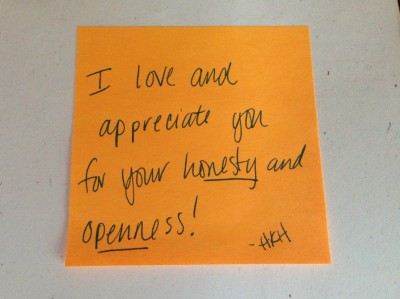 I love and
appreciate you
for your honesty and
openness!
-HKH